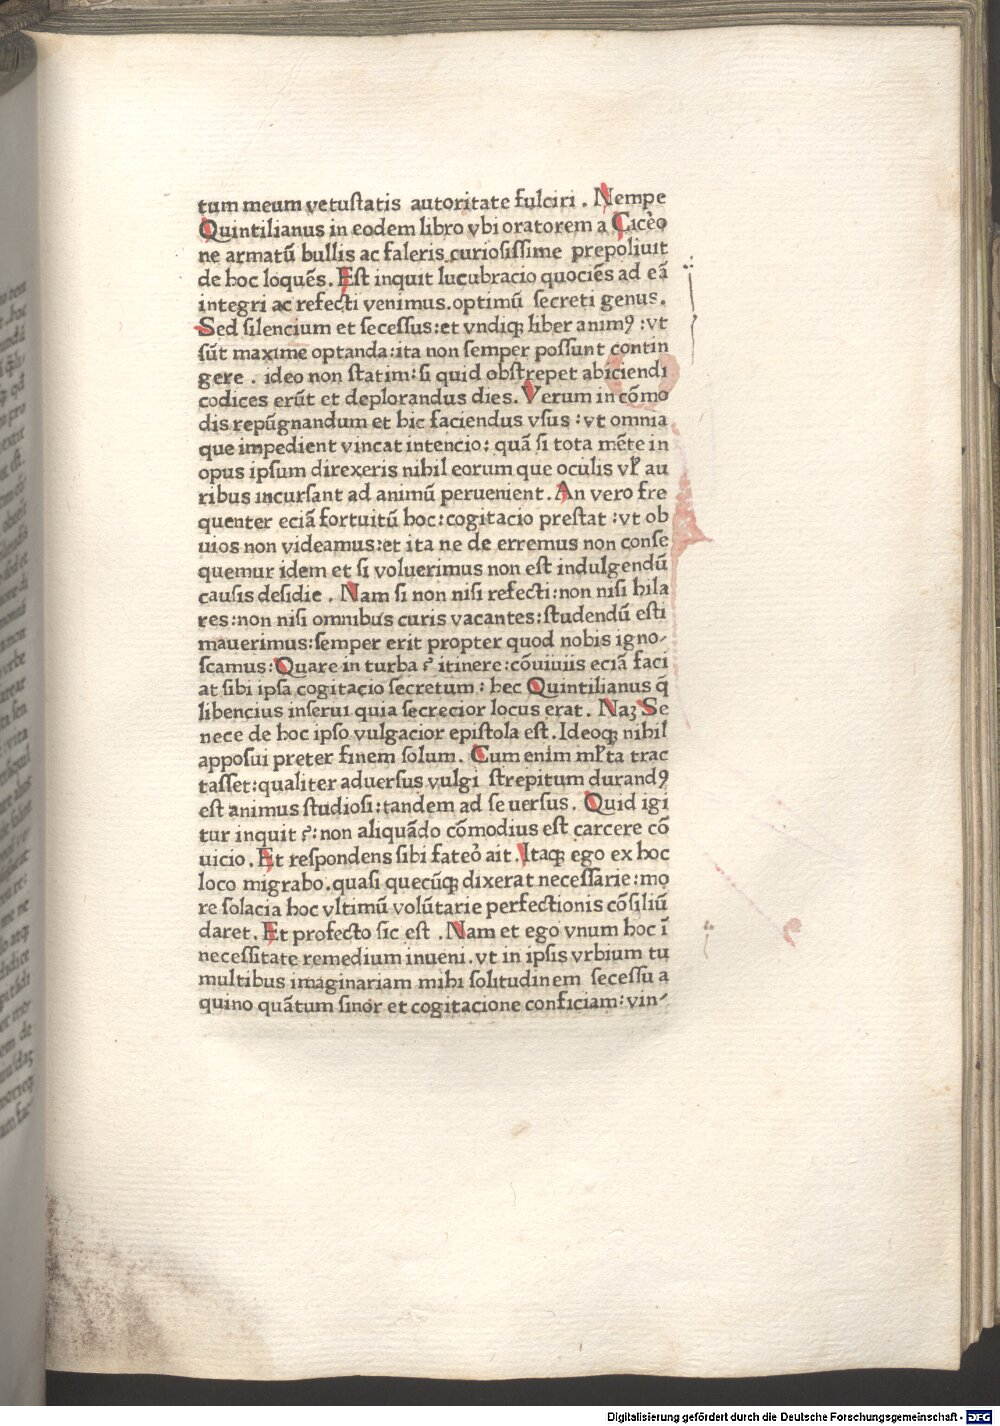 tum meum vetustatis autoritate fulciri . Nempe
Quintilianus in eodem libro vbi oratorem a Cicẽo
ne armatũ bullis ac faleris curiosissime prepoliuit
de hoc loquẽs . Est inquit lucubracio quociẽs ad eã
integri ac refecti venimus . optimũ secreti genus .
Sed silencium et secessus : et vndiqꝫ liber animꝰ : vt
sũt maxime optanda : ita non semper possunt contin
gere . ideo non statim : si quid obstrepet abiciendi
codices erũt et deplorandus dies . Verum in cõmo
dis repũgnandum et hic faciendus vsus : vt omnia
que impedient vincat intencio : quã si tota mẽte in
opus ipsum direxeris nihil eorum que oculis vl̛ au
ribus incursant ad animũ peruenient . An vero fre
quenter eciã fortuitũ hoc : cogitacio prestat : vt ob
uios non videamus : et ita ne de erremus non conse
quemur idem et si voluerimus non est indulgendũ
causis desidie . Nam si non nisi refecti : non nisi hila
res : non nisi omnibus curis vacantes : studendũ esti
mauerimus : semper erit propter quod nobis igno⸗
scamus : Quare in turba ⁊ itinere : cõuiuiis eciã faci
at sibi ipsa cogitacio secretum : hec Quintilianus q̃
libencius inserui quia secrecior locus erat . Naꝫ Se
nece de hoc ipso vulgacior epistola est . Ideoqꝫ nihil
apposui preter finem solum . Cum enim ml̛ta trac
tasset : qualiter aduersus vulgi strepitum durandꝰ
est animus studiosi : tandem ad se uersus . Quid igi
tur inquit ⁊ : non aliquãdo cõmodius est carcere cõ
uicio . Et respondens sibi fateo᷑ ait . Itaqꝫ ego ex hoc
loco migrabo . quasi quecũqꝫ dixerat necessarie : mo
re solacia hoc vltimũ volũtarie perfectionis cõsiliũ
daret . Et profecto sic est . Nam et ego vnum hoc ĩ
necessitate remedium inueni . vt in ipsis vrbium tu
multibus imaginariam mihi solitudinem secessu a
quino quãtum sinor et cogitacione conficiam : vin⸗
Digitalisierung gefördert durch die Deutsche Forschungsgemeinschaft - DFG